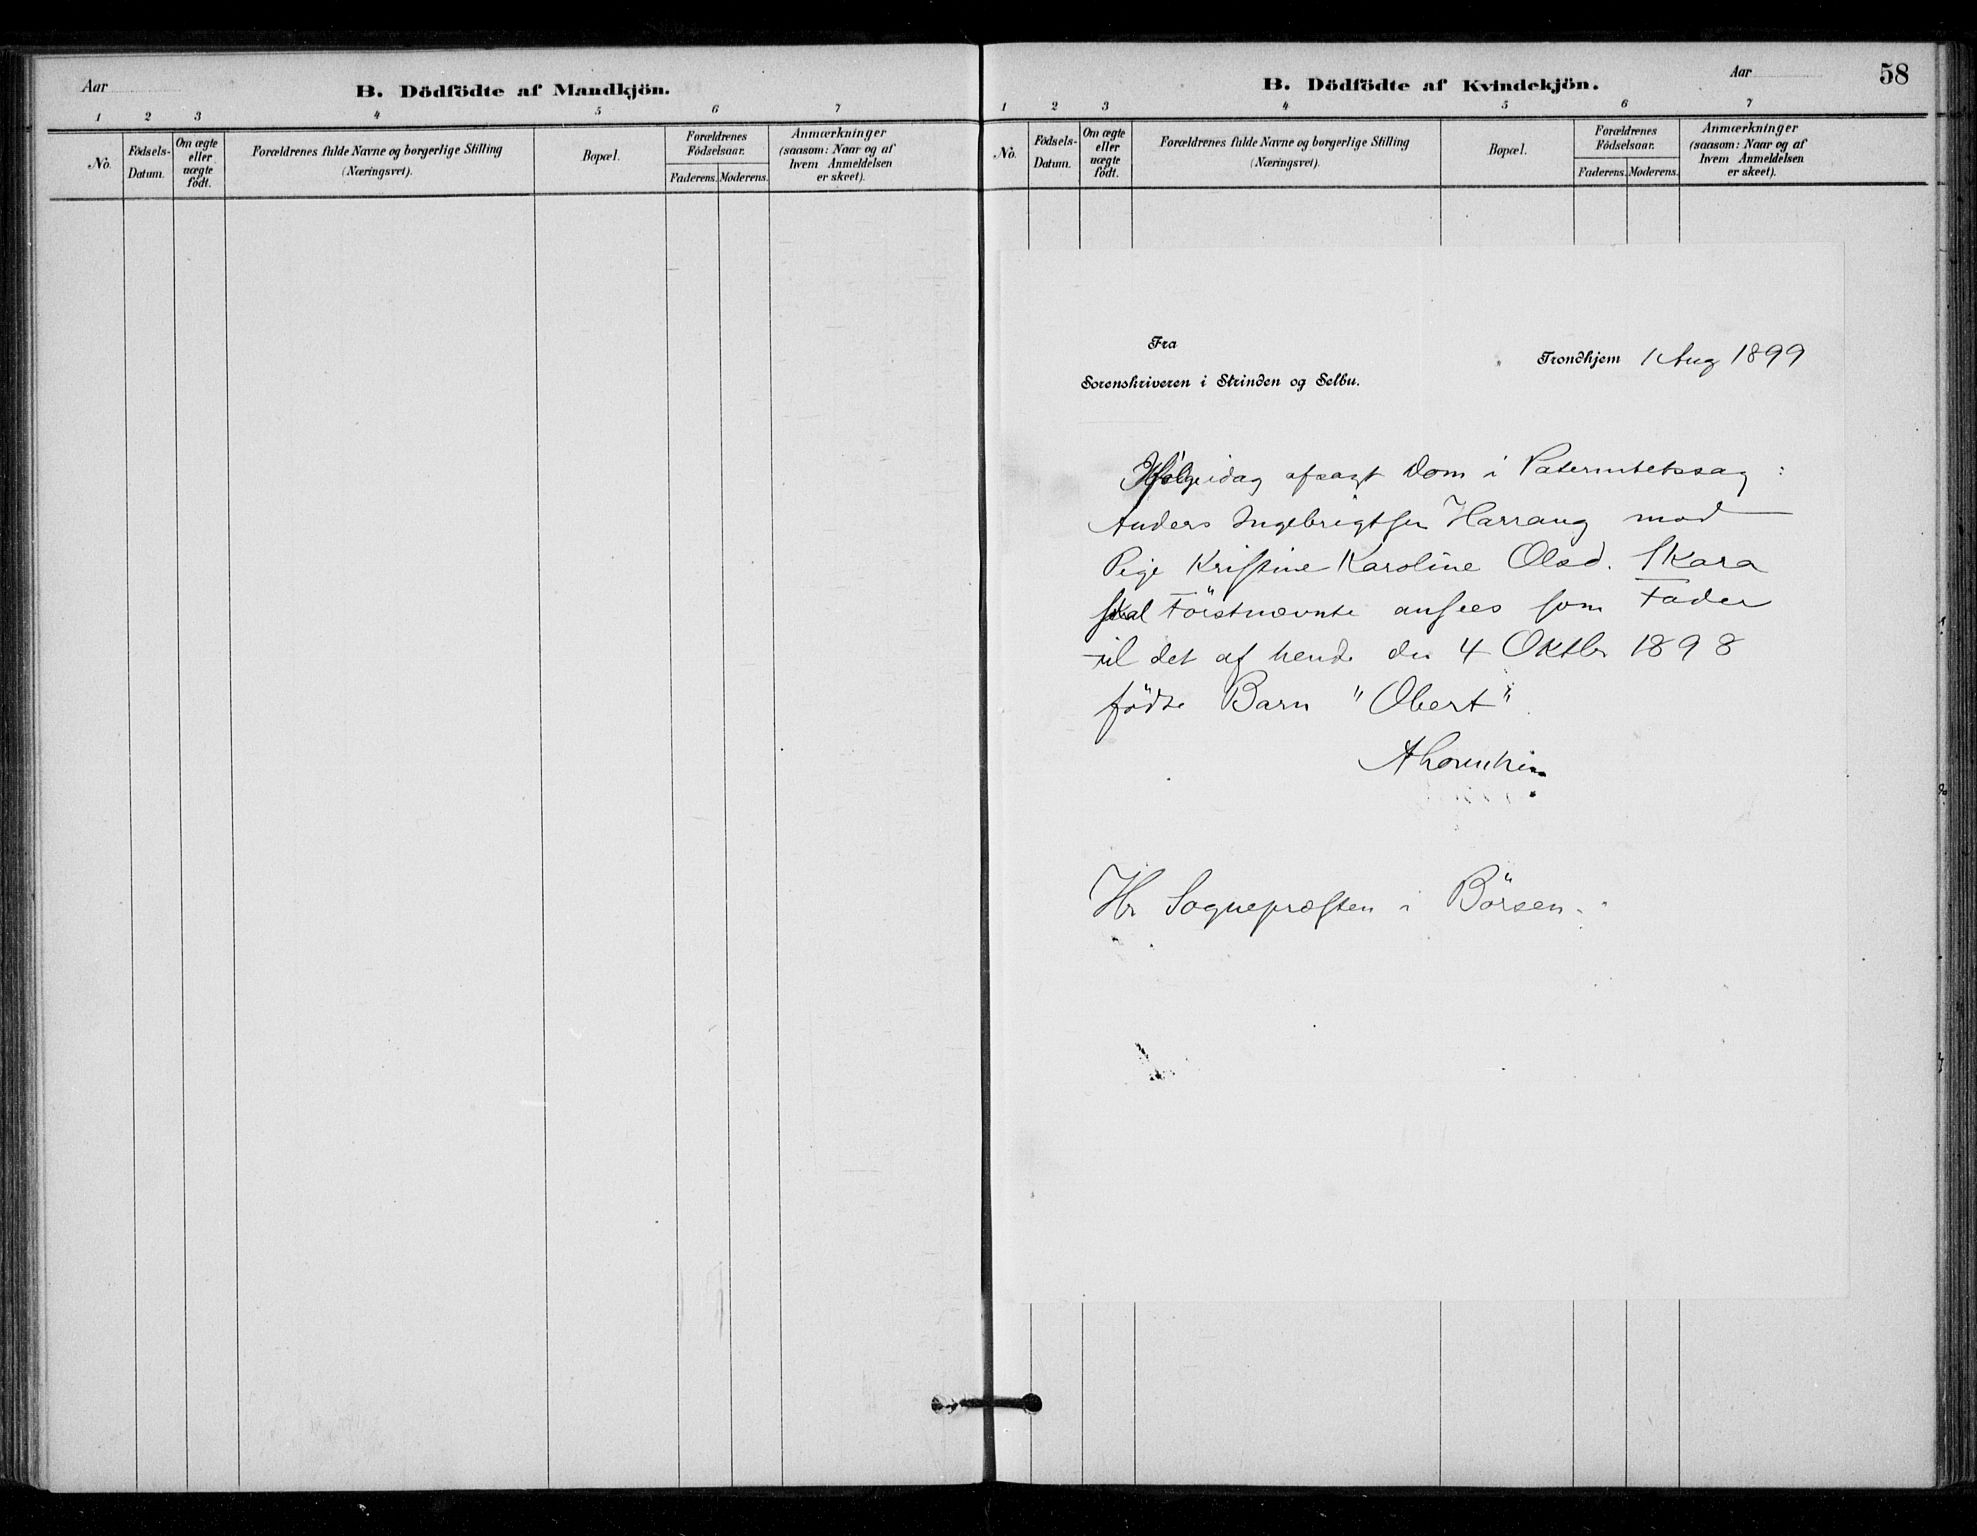 Aar
B. Dödfödte af Mandkjön.
1 2 3 4 5 6 7
No.
Födsels-Datum.
Om ægte eller uægte født.
Forældrenes fulde Navne og borgerlige Stilling (Næringsvei).
Bopæl.
Forældrenes Födselsaar.
Faderens. Moderens.
Anmærkninger (saasom: Naar og af hvem Anmeldelsen er skeet).
B. Dödfödte af Kvindekjön.
Aar
58
1 2 3 4 5 6 7
No.
Födsels-Datum.
Om ægte eller uægte födt.
Forældrenes fulde Navne og borgerlige Stilling (Næringsvei).
Bopæl.
Forældrenes Födselsaar.
Faderens. Moderens.
Anmærkninger (saasom: Naar og af hvem Anmeldelsen er skeet).
Fra
Sorenskriveren i Strinden og Selbu.
Trondhjem 1 Aug 1899
idag afsagt Dom i Paternitetssag:
Anders Ingebrigtsen Harrang mod
Pige Kristine Karoline Olsd. Skara
skal Förstnævnte ansees som Fader
til det af hende den 4 Oktbr 1898
födte Barn "Obert"
Hr Sognepræsten i Börsen.